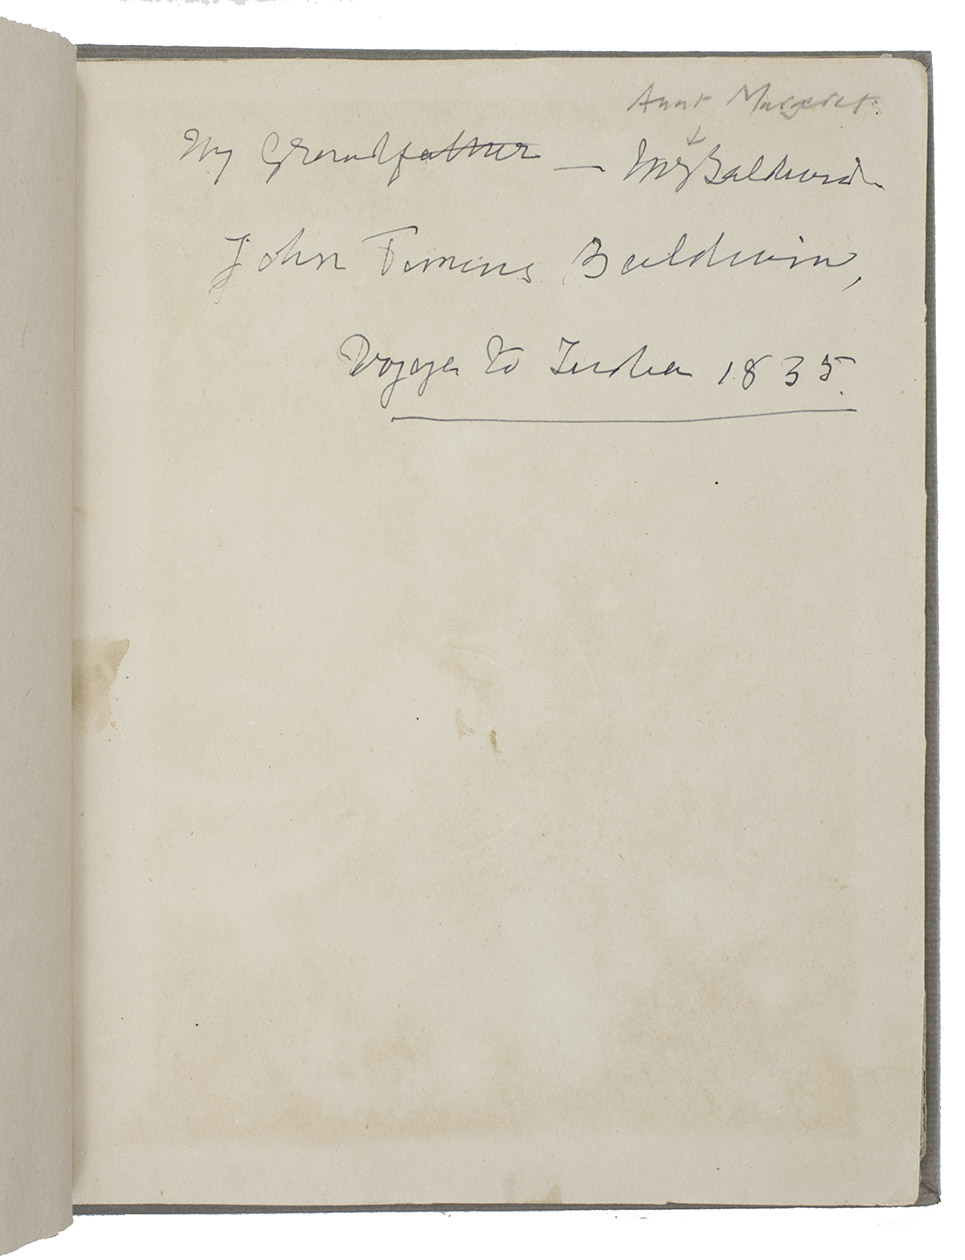 Aunt Margaret.
My Grandfather — Mrs Baldwin.
John Timins Baldwin,
Voyage to India 1835.